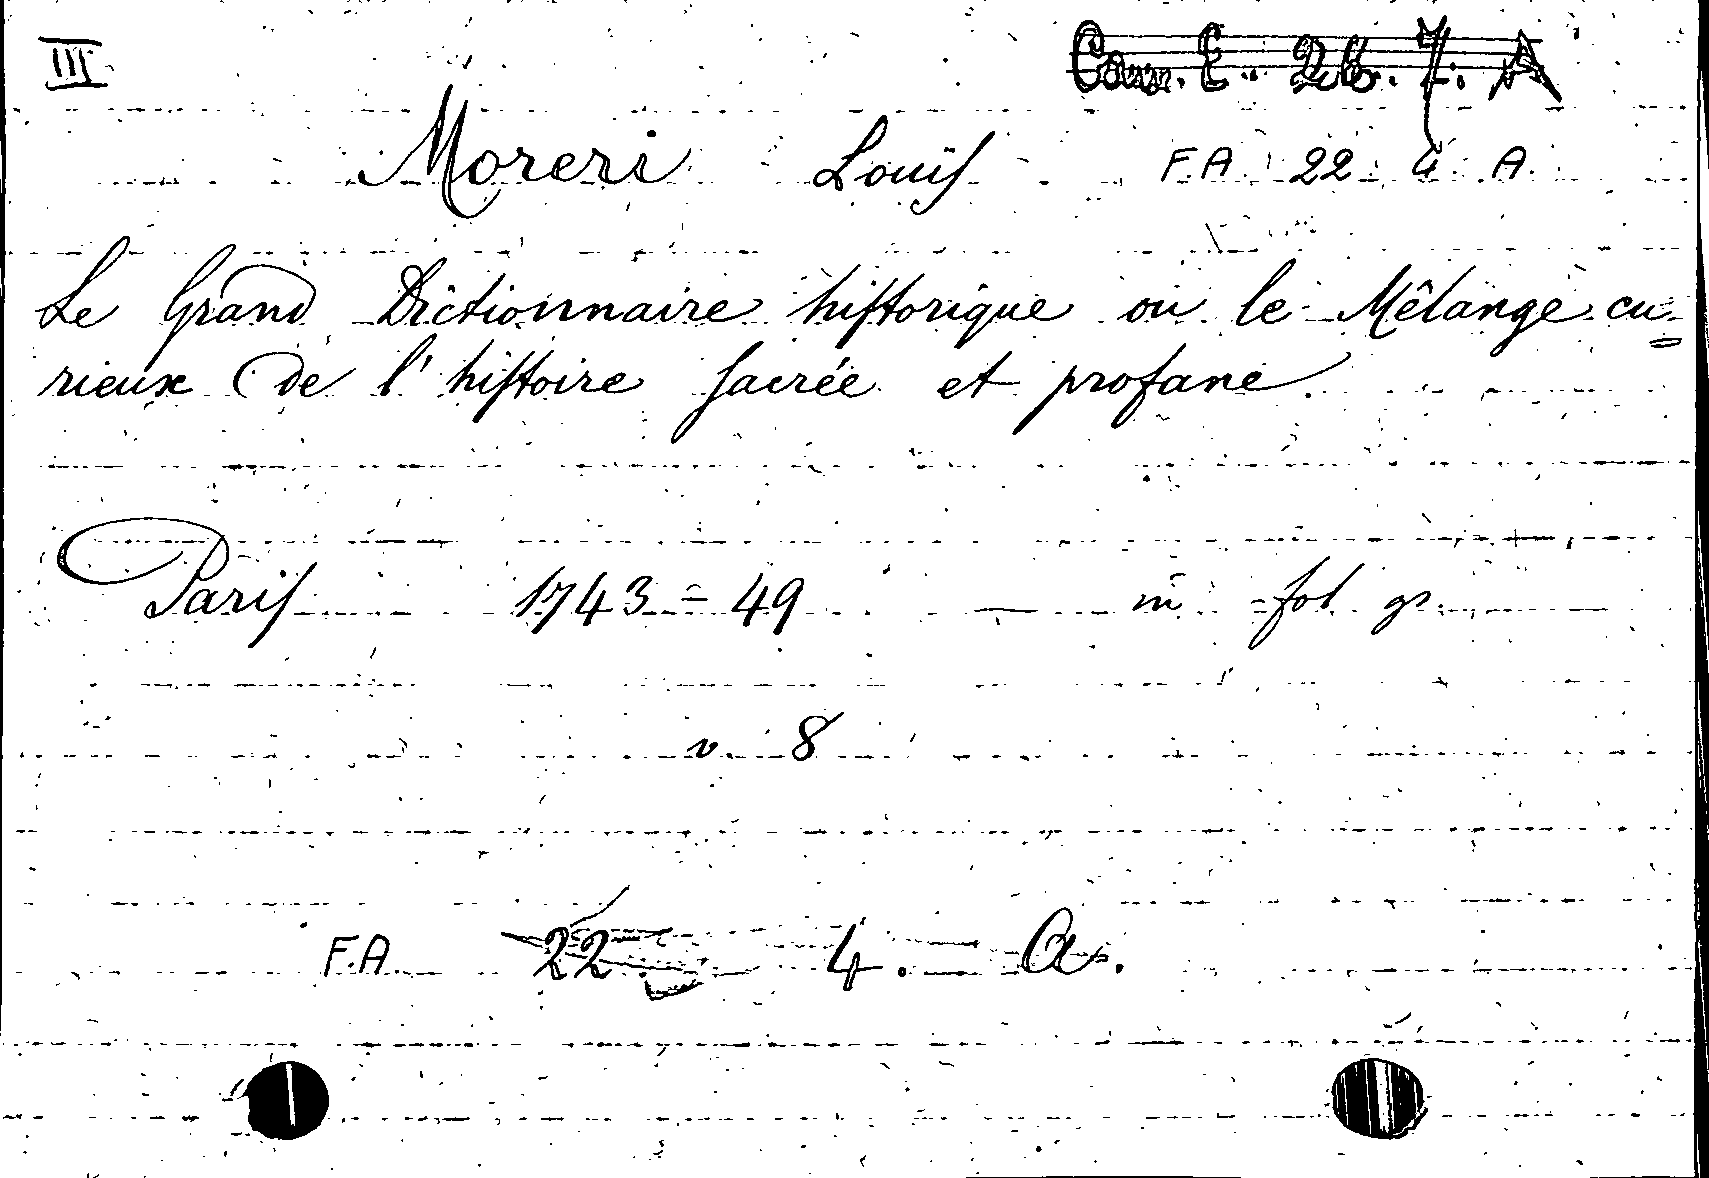 III
Cam. E. 26. 7. A
Moreri Louis F.A. 22 4 A.
Le Grand Dictionnaire historique ou le Mêlange cu=
rieux de l'histoire sacrée et profane.
Paris 1743 = 49 — in fol. gr.
v. 8
F.A. 22 4. A.